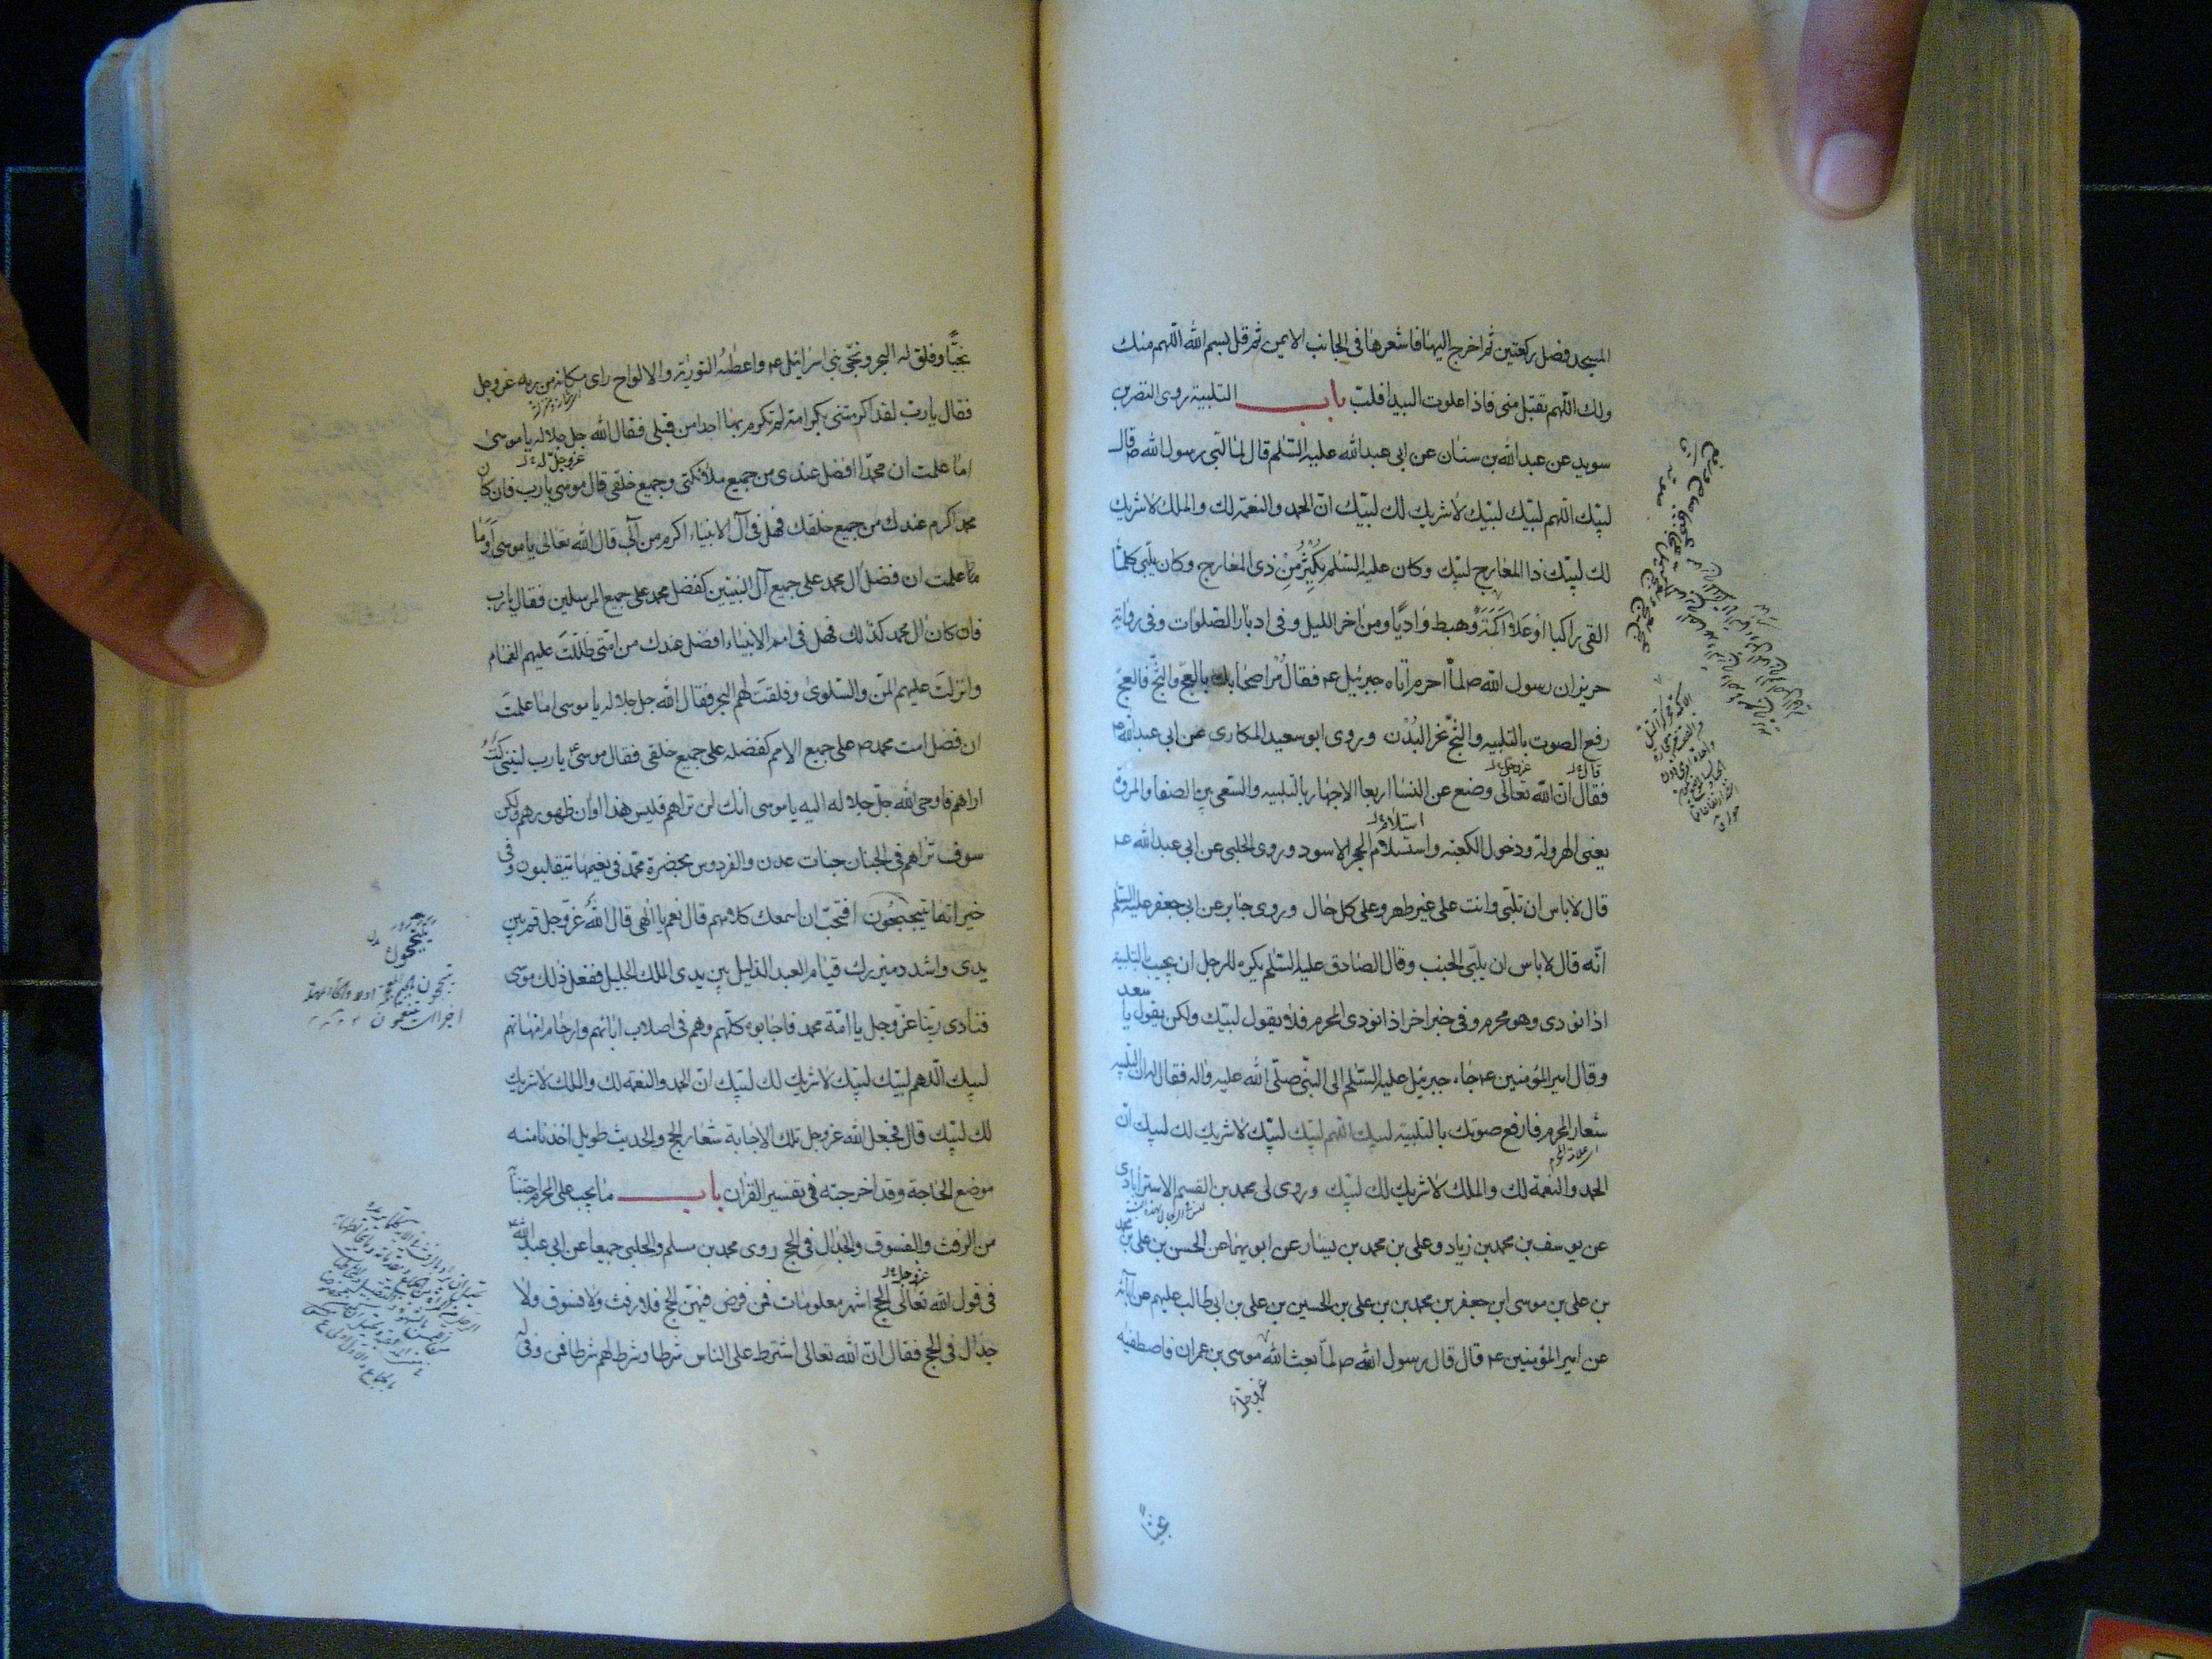 المسجد فصل ركعتين ثم اخرج اليها فاشعرها فى الجانب الايمن ثم قل بسم الله اللهم منك
ولك اللهم تقبل منى فاذا علوت البيدا فلب باب التلبية روى النضر بن
سويد عن عبدالله بن سنان عن ابى عبدالله عليه السلم قال لما لبى رسول الله ص قال
لبيك اللهم لبيك لبيك لا شريك لك لبيك ان الحمد والنعمة لك والملك لا شريك
لك لبيك ذا المعارج لبيك وكان عليه السلم يكثر من ذى المعارج وكان يلبى كلما
القى راكبا او علا اكمة وهبط واديا ومن اخر الليل وفى ادبار الصلوات وفى رواية
حريز ان رسول الله ص لما احرم اتاه جبرئيل ع فقال مر اصحابك بالعج والثج فالعج
رفع الصوت بالتلبيه والثج نحر البدن وروى ابو سعيد المكارى عن ابى عبدالله ع
فقال ان الله تعالى وضع عن النسا اربعا الاجهار بالتلبيه والسعى بين الصفا والمروة
يعنى الهرولة ودخول الكعبه واستلام الحجر الاسود وروى الحلبى عن ابى عبدالله ع
قال لا باس ان تلبى وانت على غير طهر وعلى كل حال وروى جابر عن ابى جعفر عليه السلم
انه قال لا باس ان يلبى الجنب وقال الصادق عليه السلم يكره للرجل ان يجيب بالتلبية
اذا نودى وهو محرم وفى خبر اخر اذا نودى المحرم فلا يقول لبيك ولكن يقول يا سعد
وقال امير المؤمنين ع جاء جبرئيل عليه السلم الى النبى صلى الله عليه واله فقال له ان التلبيه
شعار المحرم فارفع صوتك بالتلبية لبيك اللهم لبيك لبيك لا شريك لك لبيك ان
الحمد والنعمة لك والملك لا شريك لك لبيك وروى لى محمد بن القسم الاسترابادى
عن يوسف بن محمد بن زياد وعلى بن محمد بن يسار عن ابويهما عن الحسن بن على بن محمد
بن على بن موسى ابن جعفر بن محمد بن بن على بن الحسين بن على بن ابى طالب عليهم عن آبائه
عن امير المؤمنين ع قال قال رسول الله ص لما بعث الله موسى بن عمران فاصطفيه
نجيا وفلق له البحر ونجى بنى اسرائيل ع واعطه التورية والالواح راى مكانه من ربه عز وجل
فقال يا رب لقد اكرمتنى بكرامة لم تكرم بها احدا من قبلى فقال الله جل جلاله يا موسى
اما علمت ان محمدا افضل عندى من جميع ملائكتى وجميع خلقى قال موسى يا رب فان كان
محمد اكرم عندك من جميع خلقك فهل فى آل الانبياء اكرم من آلى قال الله تعالى يا موسى اوما
علمت ان فضل آل محمد على جميع آل النبيين كفضل محمد على جميع المرسلين فقال يا رب
فان كان آل محمد كذلك فهل فى امم الانبياء افضل عندك من امتى ظللت عليهم الغمام
وانزلت عليهم المن والسلوى وفلقت لهم البحر فقال الله جل جلاله يا موسى اما علمت
ان فضل امت محمد ص على جميع الامم كفضله على جميع خلقى فقال موسى يا رب ليتنى كنت
اراهم فاوحى الله جل جلاله اليه يا موسى انك لن تراهم فليس هذا اوان ظهورهم ولكن
سوف تراهم فى الجنان جنات عدن والفردوس بحضرة محمد فى نعيمها يتقلبون وفى
خيراتها يتبجبجون افتحب ان اسمعك كلامهم قال نعم يا الهى قال الله عز وجل قم بين
يدى واشدد ميزرك قيام العبد الذليل بين يدى الملك الجليل ففعل ذلك موسى
فنادى ربنا عز وجل يا امة محمد فاجابوه كلهم وهم فى اصلاب ابائهم وارحام امهاتهم
لبيك اللهم لبيك لبيك لا شريك لك لبيك ان الحمد والنعمه لك والملك لا شريك
لك لبيك قال فجعل الله عز وجل تلك الاجابة شعار الحج والحديث طويل اخذنا منه
موضع الحاجة وقد اخرجته فى تفسير القران باب ما يجب على المحرم اجتنابه
من الرفث والفسوق والجدال فى الحج روى محمد بن مسلم والحلبى جميعا عن ابى عبد الله ع
فى قول الله تعالى الحج اشهر معلومات فمن فرض فيهن الحج فلا رفث ولا فسوق ولا
جدال فى الحج فقال ان الله تعالى اشترط على الناس شرطا وشرط لهم شرطا فمن وفى